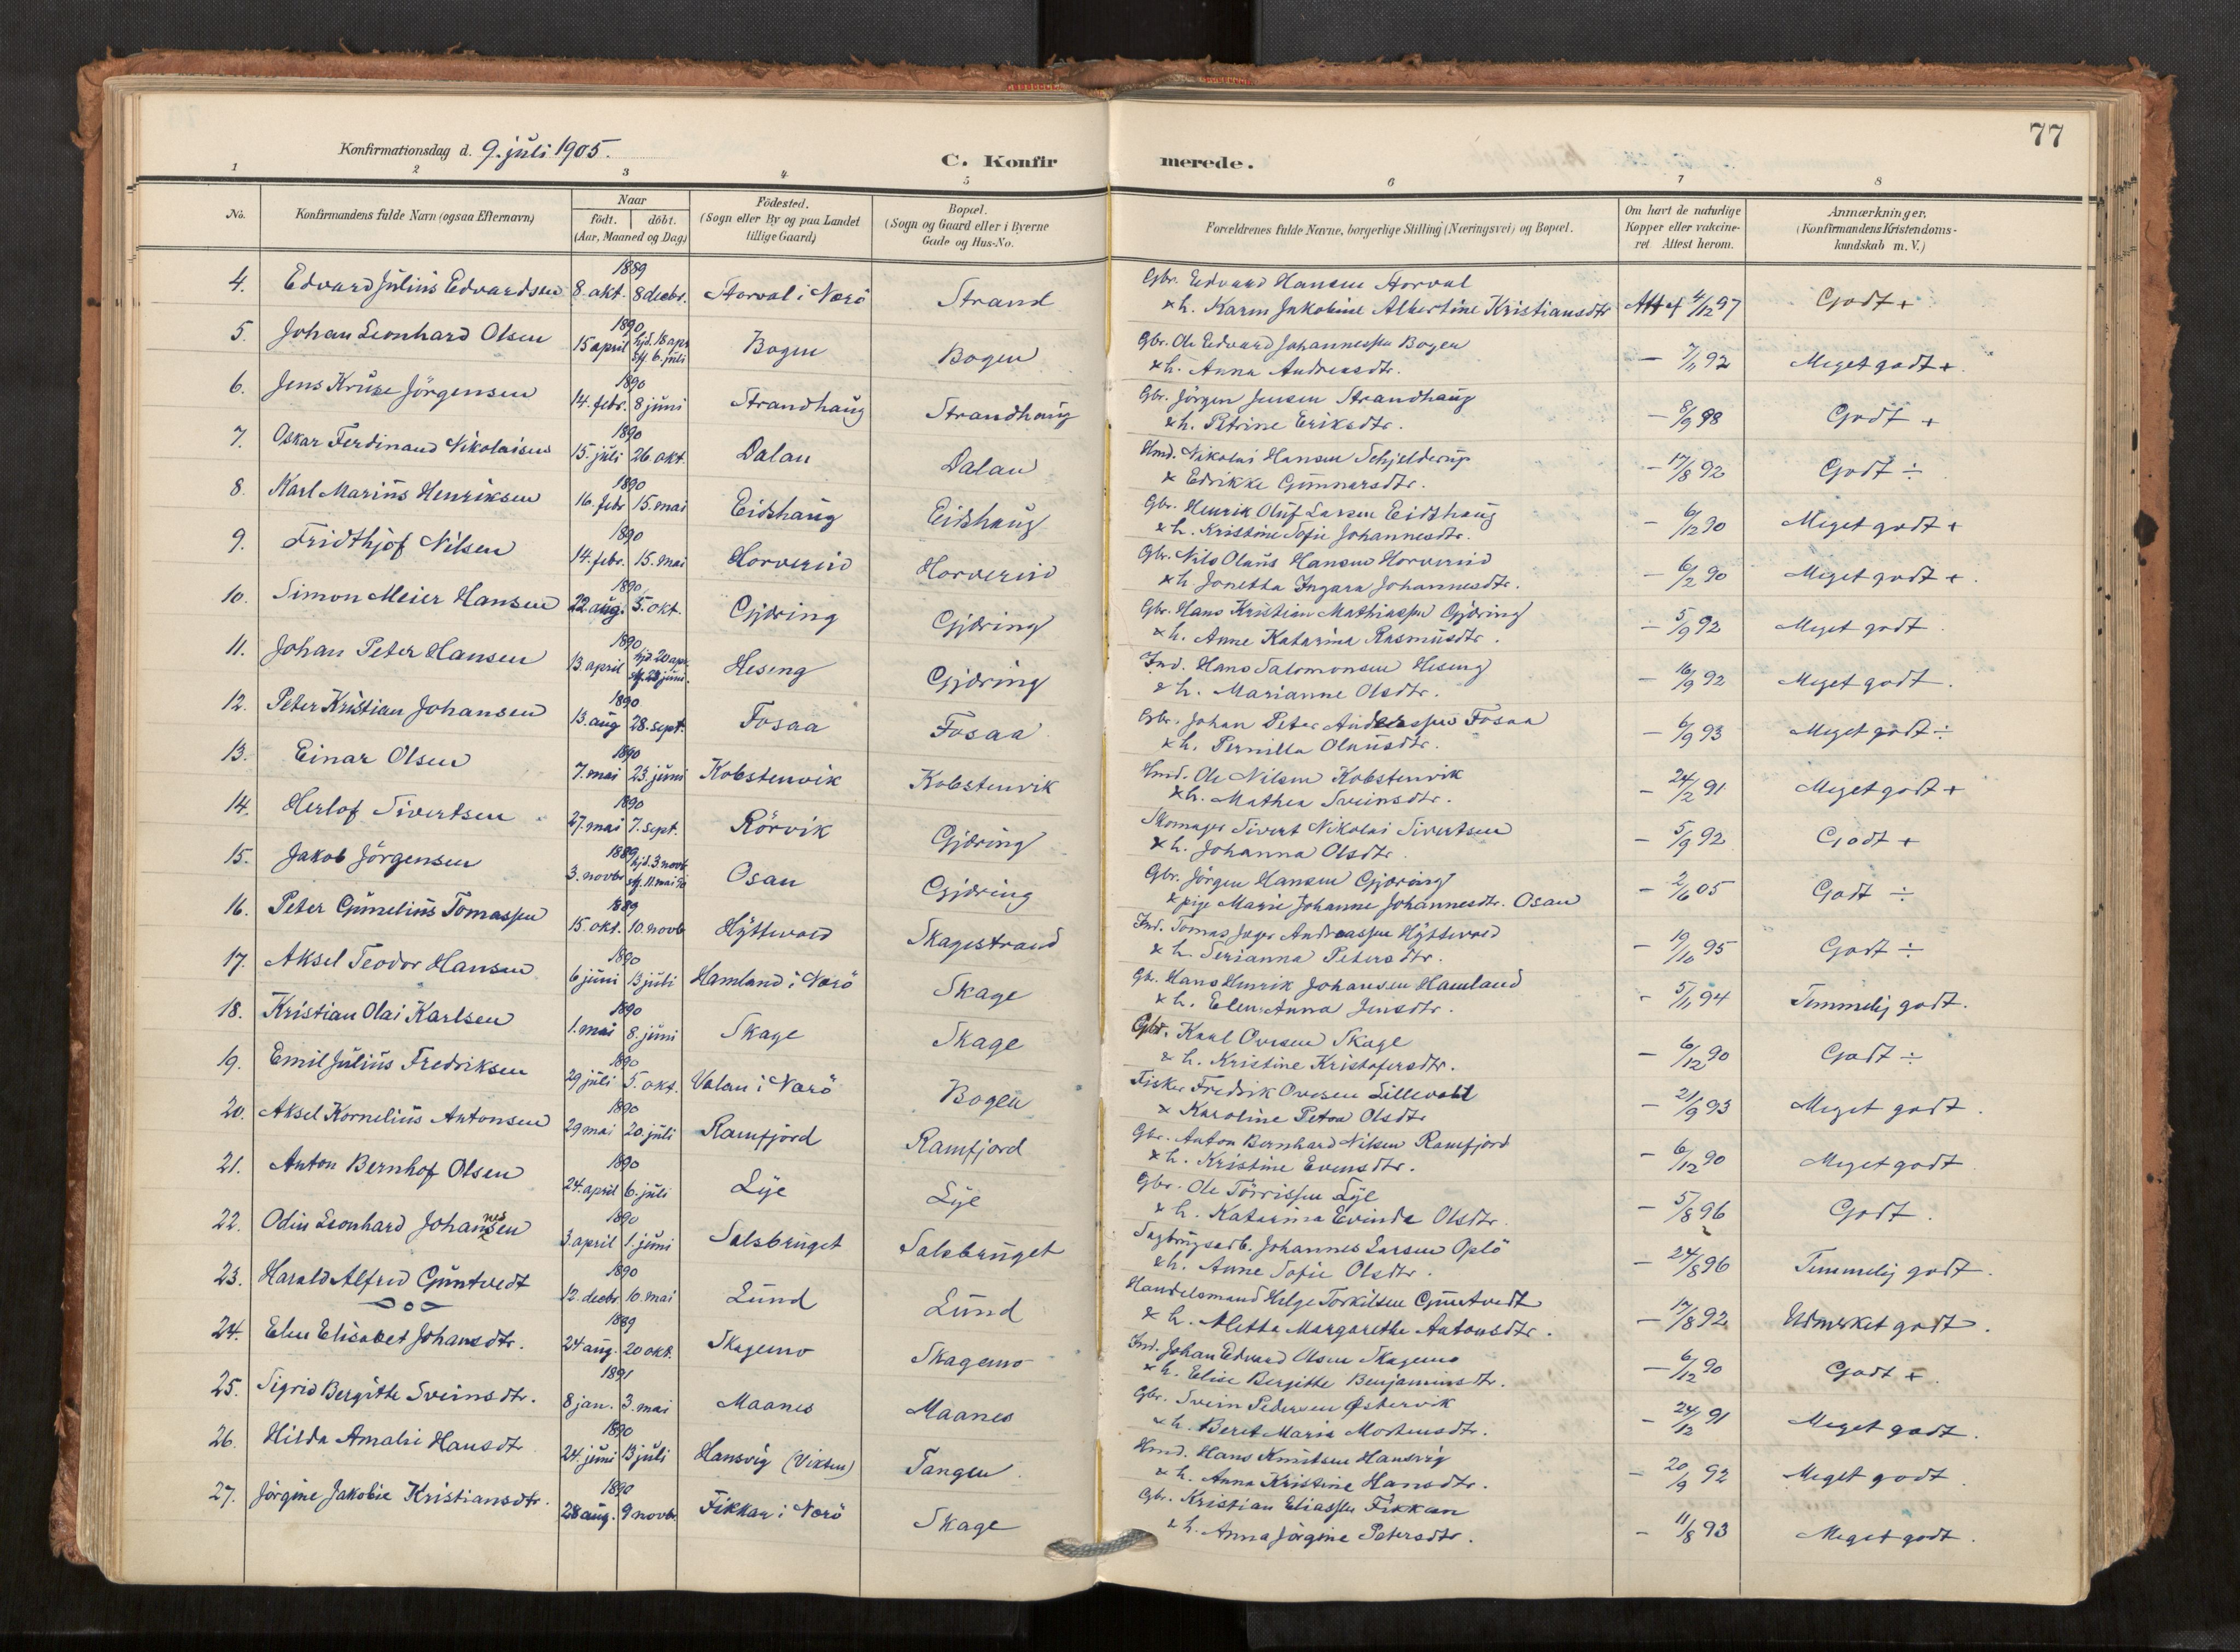 77
Konfirmationsdag d. 9. juli 1905.
C. Konfirmerede.
1 2 3 4 5 6 7 8
No. Konfirmandens fulde Navn (ogsaa Efternavn) Naar født. døbt. (Aar, Maaned og Dag) Fødested. (Sogn eller By og paa Landet tillige Gaard) Bopæl. (Sogn og Gaard eller i Byerne Gade og Hus-No. Forældrenes fulde Navne, borgerlige Stilling (Næringsvei) og Bopæl. Om havt de naturlige Kopper eller vakcineret Attest herom. Anmærkninger. (Konfirmandens Kristendomskundskab m. V.)
4. Edvard Julius Edvardsen 1889 8. okt. 8 decbr. Storval i Nærö Strand Gbr. Edvard Hansen Storval
& h. Karen Jakobine Albertine Kristiansdtr Att af 4/12 97 Godt +
5. Johan Leonhard Olsen 1890 15 april hjd. 18 apr stf. 6. juli Bogen Bogen Gbr. Ole Edvard Johannessen Bogen
& h. Anna Andreasdtr. — 7/11 92 Meget godt +.
6. Jens Kruse Jörgensen 1890 14. febr. 8 juni Strandhaug Strandhaug Gbr. Jörgen Jensen Strandhaug
& h. Petrine Eriksdtr. — 8/9 98 Godt +
7. Oskar Ferdinand Nikolaisen 1890 15. juli 26. okt. Dalan Dalan Hmd. Nikolai Hansen Schjelderup
& Edrikke Gunnarsdtr. — 17/8 92 Godt ÷
8. Karl Marius Henriksen 1890 16. febr 15. mai Eidshaug Eidshaug Gbr. Henrik Oluf Larsen Eidshaug
& h. Kristine Sofie Johannesdtr. — 6/12 90 Meget godt +
9. Fridthjof Nilsen 1890 14. febr. 15. mai Horvereid Horvereid Gbr. Nils Olaus Hansen Horvereid
& h. Jonetta Ingara Johannesdtr. — 6/2 90 Meget godt +.
10. Simon Meier Hansen 1890 22. aug. 5. okt. Gjæring Gjæring Gbr. Hans Kristian Mathiassen Gjæring
& h. Anne Katarina Rasmusdtr. — 5/9 92 Meget godt.
11. Johan Peter Hansen 1890 13 april hjd. 20 apr. juni. Heseng Gjæring Ind. Hans Salomonsen Heseng
& h. Marianne Olsdtr. — 16/9 92 Meget godt.
12. Peter Kristian Johansen 1890 13. aug 28. sept. Fosaa Fosaa Gbr. Johan Peter Andreassen Fosaa
& h. Pernilla Olausdtr. — 6/9 93 Meget godt ÷
13. Einar Olsen 1890 7. mai 23. juni Kobstenvik Kobstenvik Hmd. Ole Nilsen Kobstenvik
& h. Mathea Sveinsdtr. — 24/2 91 Meget godt +
14. Herlof Sivertsen 1890 27. mai 7. sept. Rörvik Gjæring Skomager Sivert Nikolai Sivertsen
& h. Johanna Olsdtr. — 5/9 92 Godt +
15. Jakob Jörgensen 1889 3. novbr hjd. 3 novb stf. 11. mai 90 Osan Gjæring Gbr. Jörgen Hansen Gjæring
& pige Marie Johanne Johannesdtr. Osan — 2/6 05 Godt ÷
16. Peter Gunelius Tomassen 1889 15. okt. 10. novb Hyttevold Skagestrand Ind. Tomas Jæger Andreassen Hyttevold
& h. Serianna Petersdtr. — 19/10 95 Godt ÷
17. Aksel Teodor Hansen 1890 6 juni 13 juli Hamland i Nærö Skage Gbr. Hans Henrik Johansen Hamland
& h. Elen Anna Jensdtr. — 5/11 94 Temmelig godt.
18. Kristian Olai Karlsen 1890 1. mai 8. juni Skage Skage Gbr. Karl Ovesen Skage
& h. Kristine Kristofersdtr. — 6/12 90 Godt ÷
19. Emil Julius Fredriksen 1890 29 juli 5. okt. Valan i Nærö Bogen Fisker Fredrik Ovesen Lillevald
& Karoline Petra Olsdtr — 21/9 93 Meget godt.
20. Aksel Kornelius Antonsen 1890 29 mai 20. juli Ramfjord Ramfjord Gbr. Anton Bernhard Nilsen Ramfjord
& h. Kristine Evensdtr. — 6/12 90 Meget godt
21. Anton Bernhof Olsen 1890 24. april 6. juli Lye Lye Gbr. Ole Törrissen Lye
& h. Katarina Evinda Olsdtr. — 5/8 96 Godt.
22. Odin Leonhard Johannesen 1890 3. april 1. juni Salsbruget Salsbruget Sagbrugsarb. Johannes Larsen Oplö
& h. Anne Sofie Olsdtr. — 24/8 96 Temmelig godt.
23. Harald Alfred Guntvedt 1890 12. decbr. 10. mai Lund Lund Handelsmand Helge Torkilsen Guntvedt
& h. Aletta Margarethe Antonsdtr. — 17/8 92 Udmerket godt.
24. Elen Elisabet Johansdtr. 1889 24 aug. 20 okt. Skagemo Skagemo Ind. Johan Edvard Olsen Skagemo
& h. Elise Bergitte Benjaminsdtr. — 6/12 90 Godt +.
25. Sigrid Bergitte Sveinsdtr. 1891 8 jan. 3. mai Maanes Maanes Gbr. Svein Pedersen Østervik
& h. Beret Maria Mortensdtr. — 24/12 91 Meget godt.
26. Hilda Amalie Hansdtr 1890 24. juni 13 juli Hansvig (Vikten) Tangen Hmd. Hans Knutsen Hansvig
& h. Anna Kristine Hansdtr. — 20/9 92 Meget godt
27. Jörgine Jakobie Kristiansdtr. 1890 28 aug. 9 novbr. Fikkan i Nærö Skage Gbr. Kristian Eliassen Fikkan
& h. Anna Jörgine Petersdtr. — 11/8 93 Meget godt.